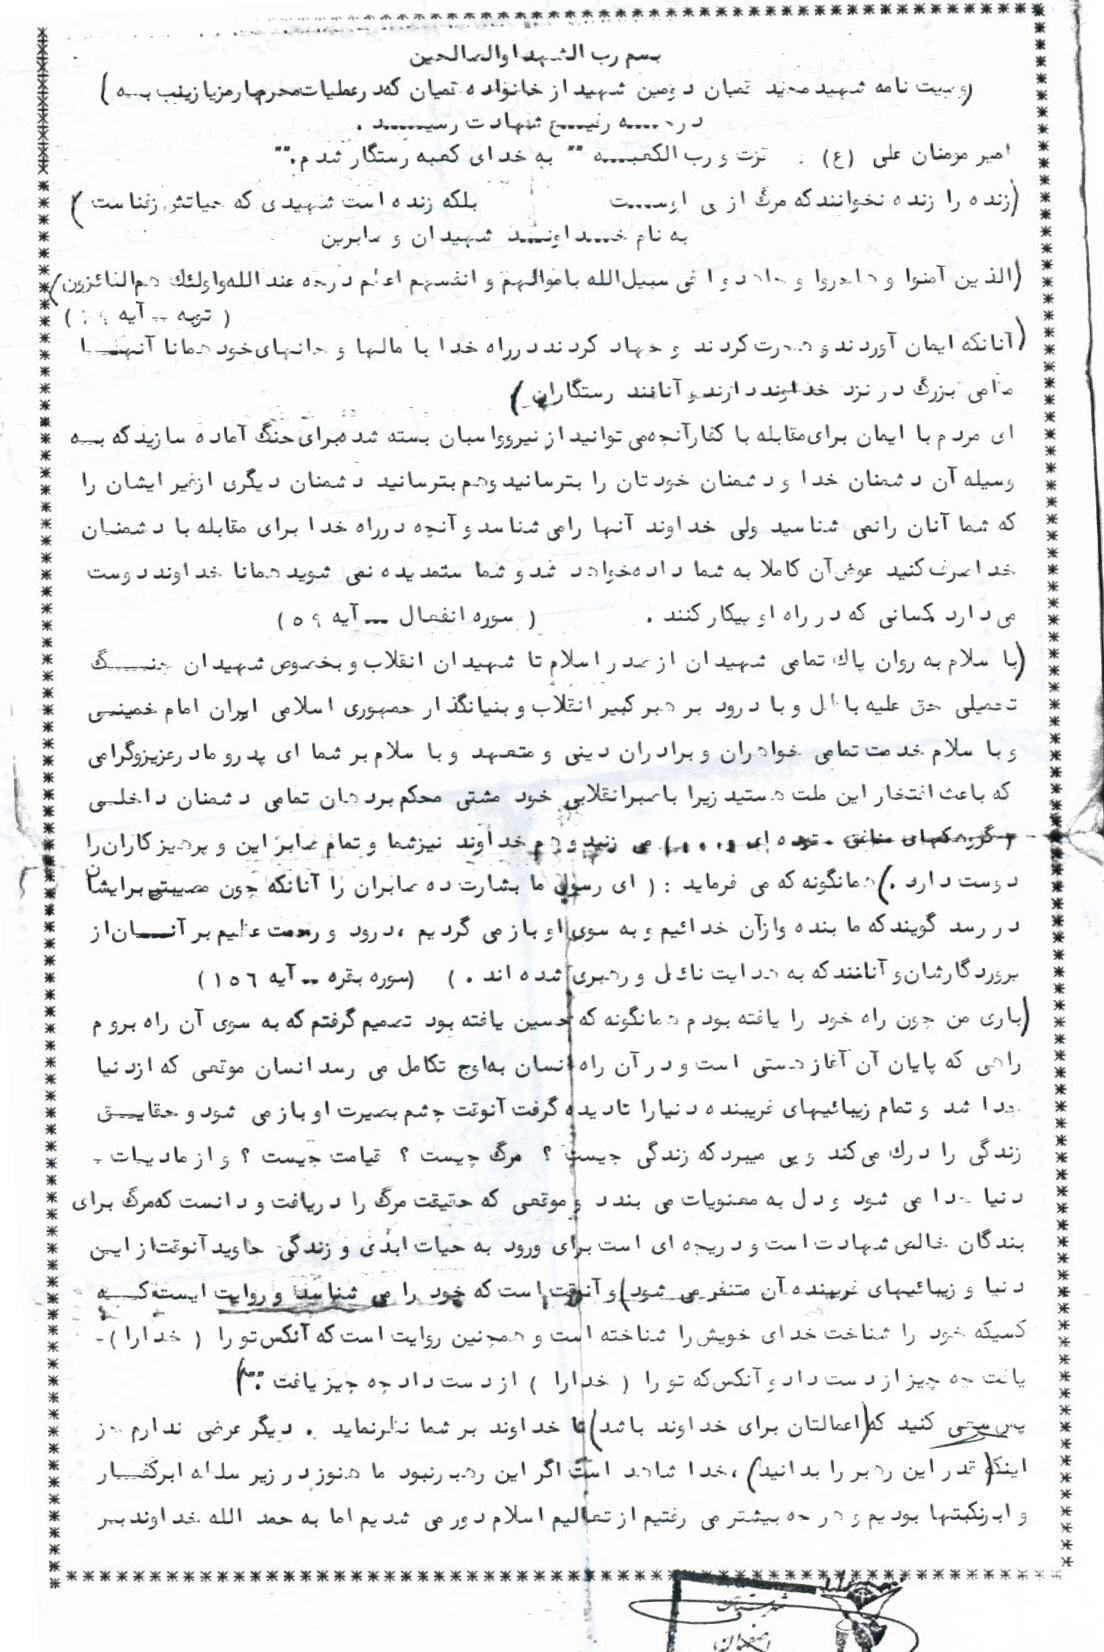 بسم رب الشهداوالصالحین
(وصیت نامه شهید مجید تمیان دومین شهید از خانواده تمیان که در عملیات محرم بارمز یازینب بـــه)
درجـــــه رفیــــع شهادت رسیــــــد .
امیر مومنان علی (ع) : فزت و رب الکعبـــــه "" به خدای کعبه رستگار شدم.""
(زنده را زنده نخوانند که مرگ از پی اوســـت بلکه زنده است شهیدی که حیاتش زفناست)
به نام خـــداونـــد شهیدان و صابرین
(الذین آمنوا و هاجروا و جاهدوا فی سبیل الله باموالهم و انفسهم اعظم درجه عندالله واولئك هم الفائزون)
( توبه ــ آیه )
(آنانکه ایمان آوردند و هجرت کردند و جهاد کردند درراه خدا با مالها و جانهای خود همانا آنهــــا
مقامی بزرگ در نزد خداوند دارند و آنانند رستگاران)
ای مردم با ایمان برای مقابله با کفار آنچه می توانید از نیرو و اسبان بسته شده برای جنگ آماده سازید که بــه
وسیله آن دشمنان خدا و دشمنان خودتان را بترسانید وهم بترسانید دشمنان دیگری ازغیر ایشان را
که شما آنان رانمی شناسید ولی خداوند آنها رامی شناسد و آنچه درراه خدا برای مقابله با دشمنـان
خدا صرف کنید عوض آن کاملا به شما داده خواهد شد و شما ستمدیده نمی شوید همانا خداوند دوست
می دارد کسانی که در راه او پیکار کنند . ( سوره انفعال ــ آیه ۵۹ )
(با سلام به روان پاك تمامی شهیدان از صدر اسلام تا شهیدان انقلاب و بخصوص شهیدان جنـــــگ
تحمیلی حق علیه باطل و با درود بر رهبر کبیر انقلاب و بنیانگذار جمهوری اسلامی ایران امام خمینـی
و با سلام خدمت تمامی خواهران و برادران دینی و متعهد و با سلام بر شما ای پدر و مادر عزیزوگرامی
که باعث افتخار این ملت هستید زیرا باصبرانقلابی خود مشتی محکم بر دهان تمامی دشمنان داخلـی
(گروهکهای منافق ــ توده ای و....) می زنید و هم خداوند نیز شما و تمام صابر این و پرهیز کاران را
دوست دارد .) همانگونه که می فرماید : ( ای رسول ما بشارت ده صابران را آنانکه چون مصیبتی برایشان
در رسد گویند که ما بنده وازآن خدائیم و به سوی او باز می گردیم ، درود و رحمت عظیم بر آنــــان از
پروردگارشان و آنانند که به هدایت نائل و رهبری شده اند . ) (سوره بقره ــ آیه ۱۵٦ )
(باری من چون راه خود را یافته بودم همانگونه که حسین یافته بود تصمیم گرفتم که به سوی آن راه بروم
راهی که پایان آن آغاز هستی است و در آن راه انسان به اوج تکامل می رسد انسان موقعی که ازدنیا
جدا شد و تمام زیبائیهای فریبنده دنیارا نادیده گرفت آنوقت چشم بصیرت او باز می شود و حقایــق
زندگی را درك می کند و پی میبرد که زندگی چیست ؟ مرگ چیست ؟ قیامت چیست ؟ و از مادیـات -
دنیا جدا می شود و دل به معنویات می بندد و موقعی که حقیقت مرگ را دریافت و دانست که مرگ برای
بندگان خالص شهادت است و دریچه ای است برای ورود به حیات ابدی و زندگی جاوید آنوقت از ایـن
دنیا و زیبائیهای فریبنده آن متنفر می شود) و آنوقت است که خود را می شناسد و روایت است کــه
کسیکه خود را شناخت خدای خویش را شناخته است و همچنین روایت است که آنکس تو را ( خدا را ) -
یافت چه چیز از دست داد و آنکس که تو را ( خدارا ) از دست داد چه چیز یافت .""
پس سعی کنید که (اعمالتان برای خداوند باشد) تا خداوند بر شما نظر نماید . دیگر عرضی ندارم جز
اینکه (قدر این رهبر را بدانید) ، خدا شاهد است اگر این رهبر نبود ما هنوز در زیر سلطه ابرکفــار
و ابرنکبتها بودیم و هر چه بیشتر می رفتیم از تعالیم اسلام دور می شدیم اما به حمد الله خداوند بـر
شهرستان
اصفهان